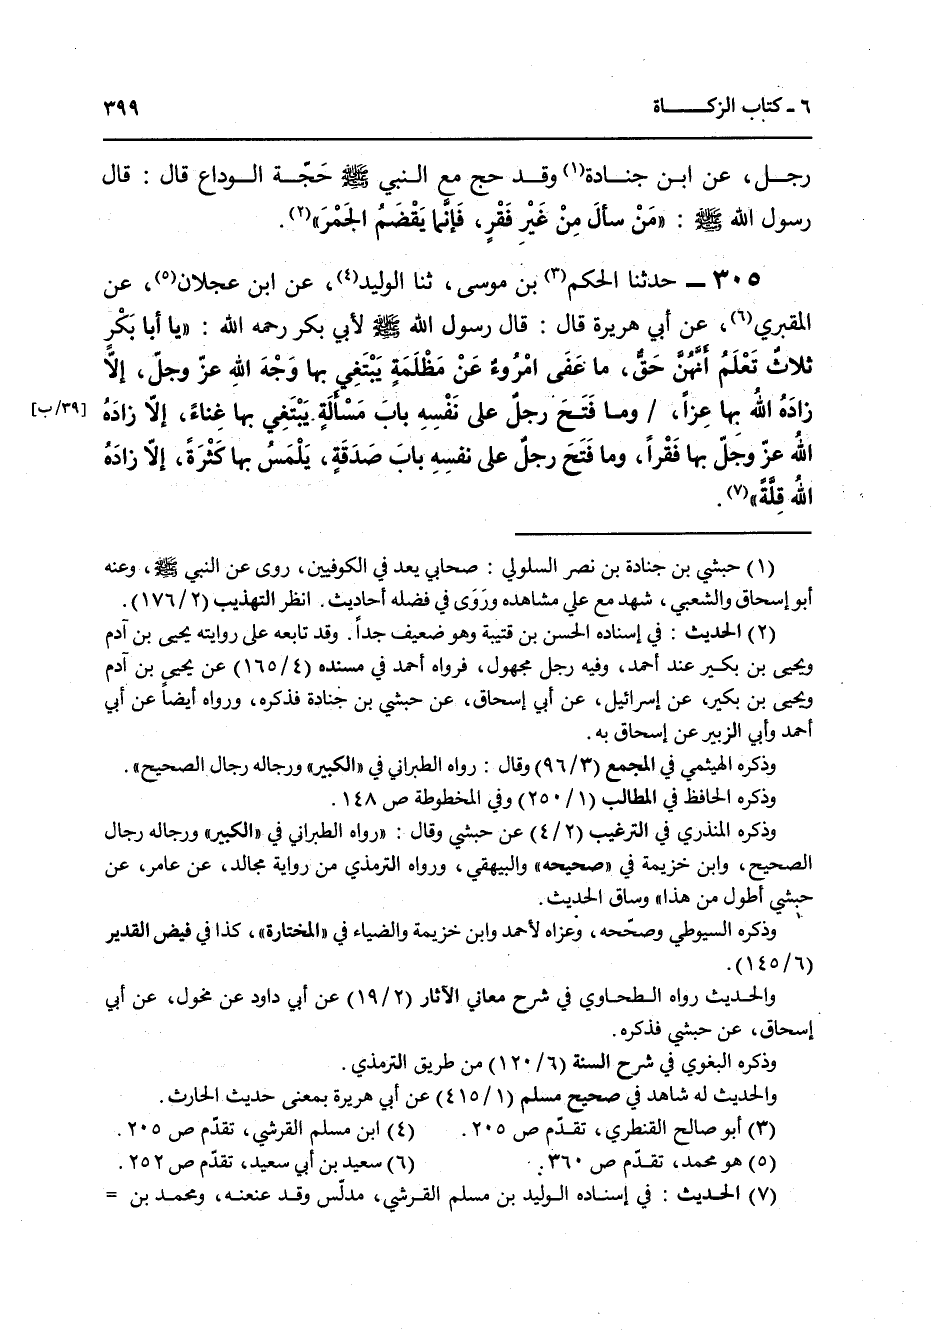 ٦ - كتاب الزكـــــاة ٣٩٩
رجــل، عن ابـن جنـادة(١) وقــد حج مع الـنبي ﷺ حَجّــة الــوداع قال : قال
رسول الله ﷺ : «مَنْ سأَلَ مِنْ غَيْرِ فَقْرٍ، فَإنَّما يَقْضَمُ الجَمْرَ»(٢).
٣٠٥ ــ حدثنا الحكم(٣) بن موسى، ثنا الوليد(٤)، عن ابن عجلان(٥)، عن
المقبري(٦)، عن أبي هريرة قال : قال رسول الله ﷺ لأبي بكر رحمه الله : «يا أبا بَكْرٍ
ثلاثٌ تَعْلَمُ أَنَّهُنَّ حَقٌّ، ما عَفَى امْرُوءٌ عَنْ مَظْلَمَةٍ يَبْتَغِي بها وَجْهَ اللهِ عزّ وجلّ، إلّا
زادَهُ اللهُ بها عِزاً، / وما فَتَـحَ رجلٌ على نَفْسِهِ بابَ مَسْأَلَةٍ يَبْتَغِي بها غناءً، إلّا زادَهُ [٣٩/ب]
اللهُ عزّ وجَلّ بها فَقْراً، وما فَتَحَ رجلٌ على نفسِهِ بابَ صَدَقَةٍ، يَلْمَسُ بها كَثْرَةً، إلّا زادَهُ
اللهُ قِلَّةً»(٧).
(١) حبشي بن جنادة بن نصر السلولي : صحابي يعد في الكوفيين، روى عن النبي ﷺ، وعنه
أبو إسحاق والشعبي، شهد مع علي مشاهده ورَوَى في فضله أحاديث. انظر التهذيب (١٧٦/٢).
(٢) الحديث : في إسناده الحسن بن قتيبة وهو ضعيف جداً. وقد تابعه على روايته يحيى بن آدم
ويحيى بن بكـير عند أحمد، وفيه رجل مجهول، فرواه أحمد في مسنده (١٦٥/٤) عن يحيى بن آدم
ويحيى بن بكير، عن إسرائيل، عن أبي إسحاق، عن حبشي بن جنادة فذكره، ورواه أيضاً عن أبي
أحمد وأبي الزبير عن إسحاق به.
وذكره الهيثمي في المجمع (٩٦/٣) وقال : رواه الطبراني في «الكبير» ورجاله رجال الصحيح».
وذكره الحافظ في المطالب (٢٥٠/١) وفي المخطوطة ص ١٤٨.
وذكره المنذري في الترغيب (٤/٢) عن حبشي وقال : «رواه الطبراني في «الكبير» ورجاله رجال
الصحيح، وابن خزيمة في «صحيحه» والبيهقي، ورواه الترمذي من رواية مجالد، عن عامر، عن
حبشي أطول من هذا» وساق الحديث.
وذكره السيوطي وصحّحه، وعزاه لأحمد وابن خزيمة والضياء في «المختارة»، كذا في فيض القدير
(١٤٥/٦).
والحديث رواه الطحاوي في شرح معاني الآثار (١٩/٢) عن أبي داود عن مخول، عن أبي
إسحاق، عن حبشي فذكره.
وذكره البغوي في شرح السنة (١٢٠/٦) من طريق الترمذي.
والحديث له شاهد في صحيح مسلم (٤١٥/١) عن أبي هريرة بمعنى حديث الحارث.
(٣) أبو صالح القنطري، تقـدّم ص ٢٠٥. (٤) ابن مسلم القرشي، تقدّم ص ٢٠٥.
(٥) هو محمد، تقـدّم ص ٣٦٠. (٦) سعيد بن أبي سعيد، تقدّم ص ٢٥٢.
(٧) الحديث : في إسناده الوليد بن مسلم القرشي، مدلّس وقد عنعنه، ومحمد بن =